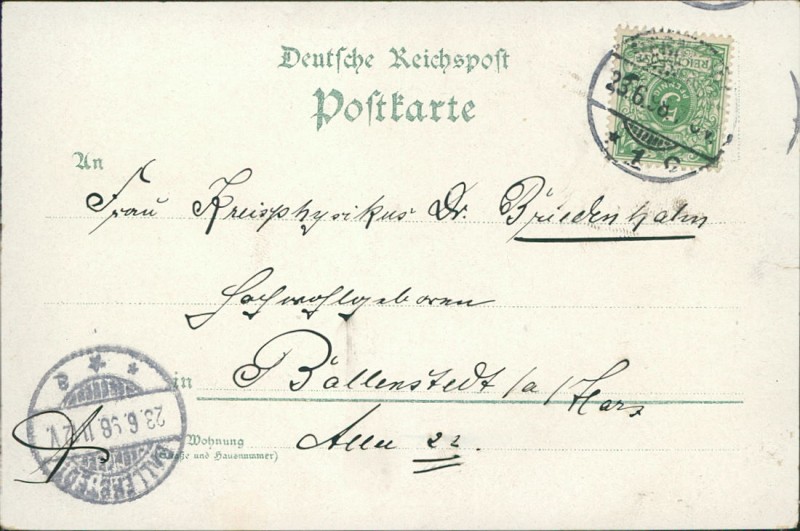 Deutsche Reichspost
Postkarte
An
Frau Kreisphysikus Dr.
Hochwohlgeboren
in Ballenstedt /a/ Harz
Wohnung Allee 22.
(Straße und Hausnummer)
23.6.98
23.6.98. 11-12V.
BALLENSTEDT